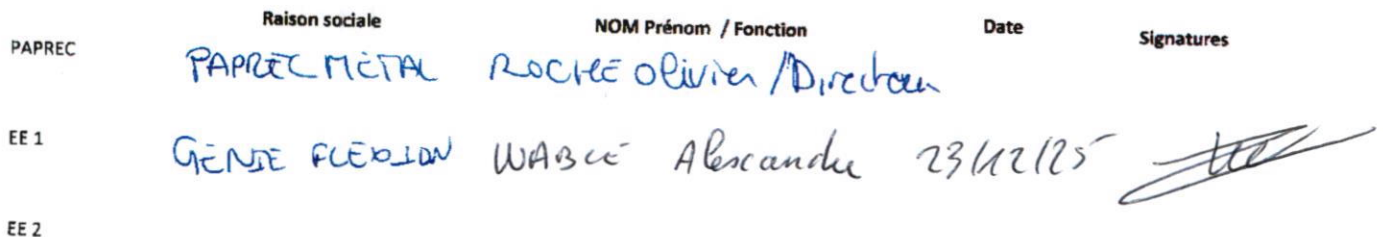 Raison sociale NOM Prénom / Fonction Date Signatures
PAPREC PAPREC METAL ROCHE Olivier / Directeur
EE 1 GENIE FLEXION WABLE Alexandre 23/12/25
EE 2